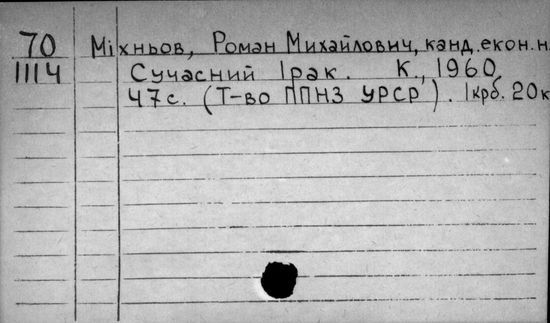 70 Міхньов, Роман Михайлович, канд. екон. н.
1114 Сучасний Ірак. К., 1960
47 с. (Т-во ППНЗ УРСР). 1 крб. 20 к